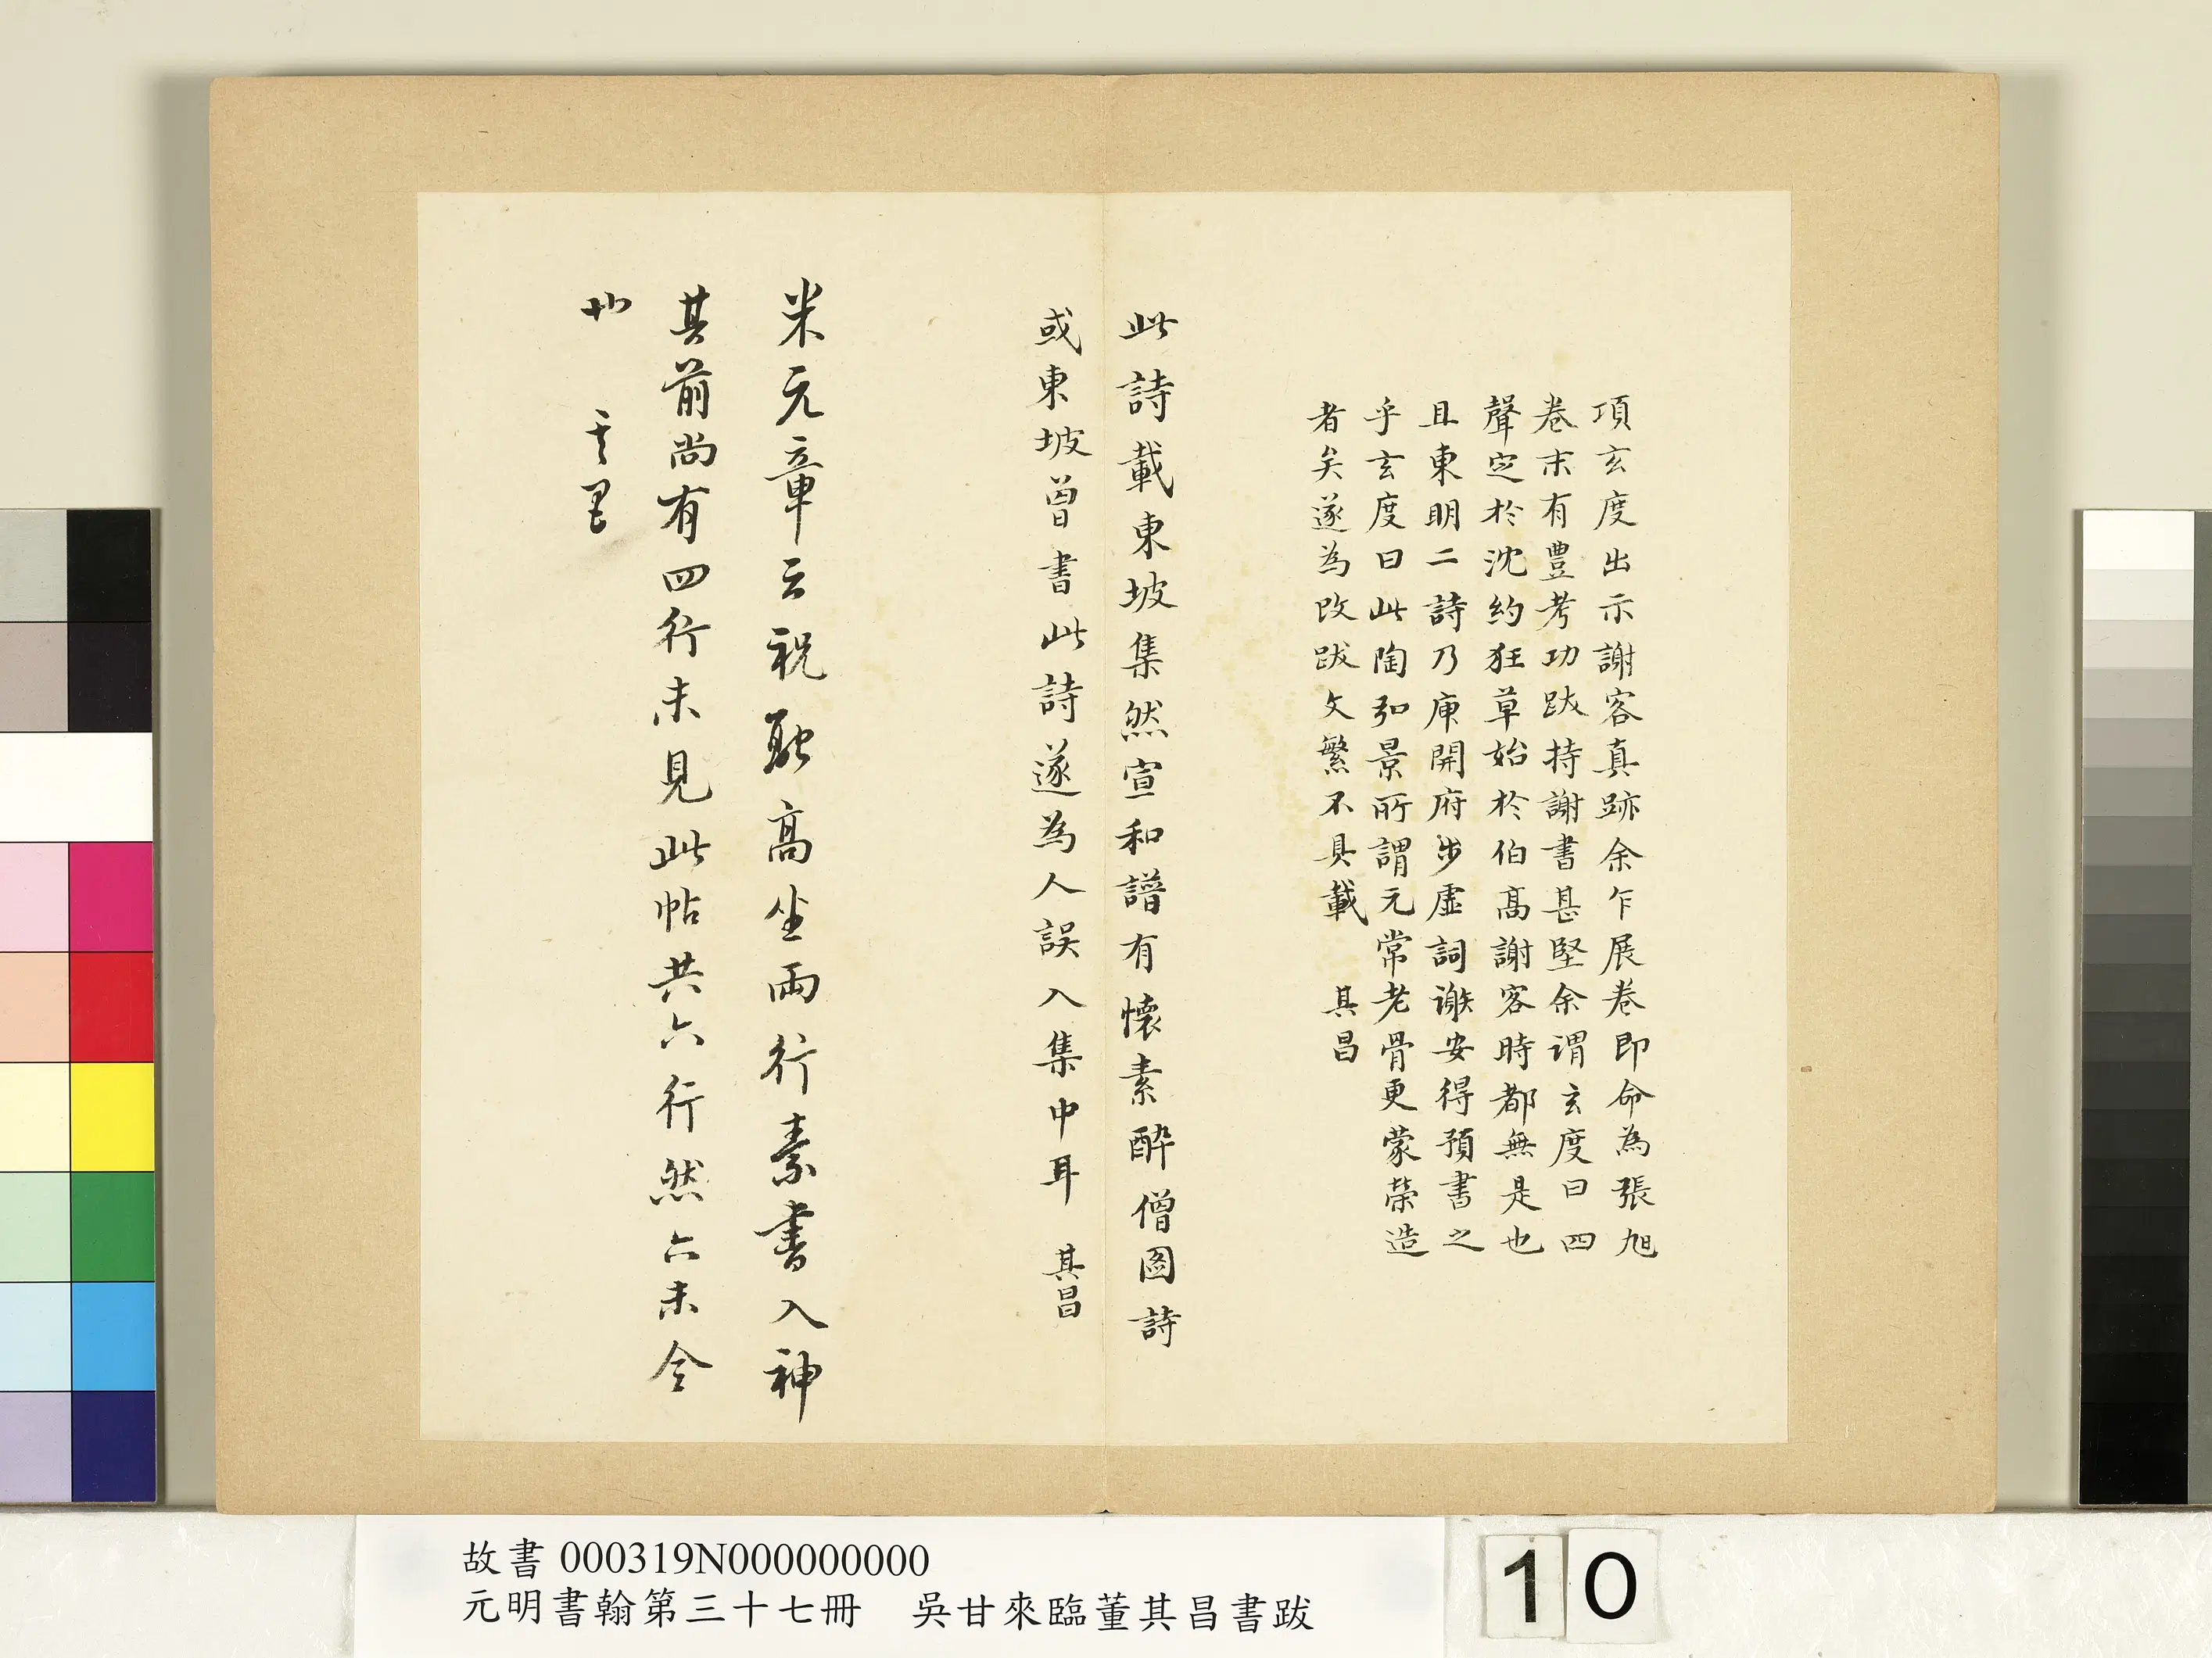 項玄度出示謝客真跡余乍展卷即命為張旭
卷末有豐考功跋持謝書甚堅余謂玄度曰四
聲定於沈約狂草始於伯高謝客時都無是也
且東明二詩乃庾開府步虛詞謝安得預書之
乎玄度曰此陶弘景所謂元常老骨更蒙榮造
者矣遂為改跋文繁不具載 其昌
此詩載東坡集然宣和譜有懷素醉僧圖詩
或東坡曾書此詩遂為人誤入集中耳 其昌
米元章云祝融高坐兩行素書入神
其前尚有四行未見此帖共六行然亦未全
也
故書 000319N000000000
元明書翰第三十七冊 吳甘來臨董其昌書跋
10